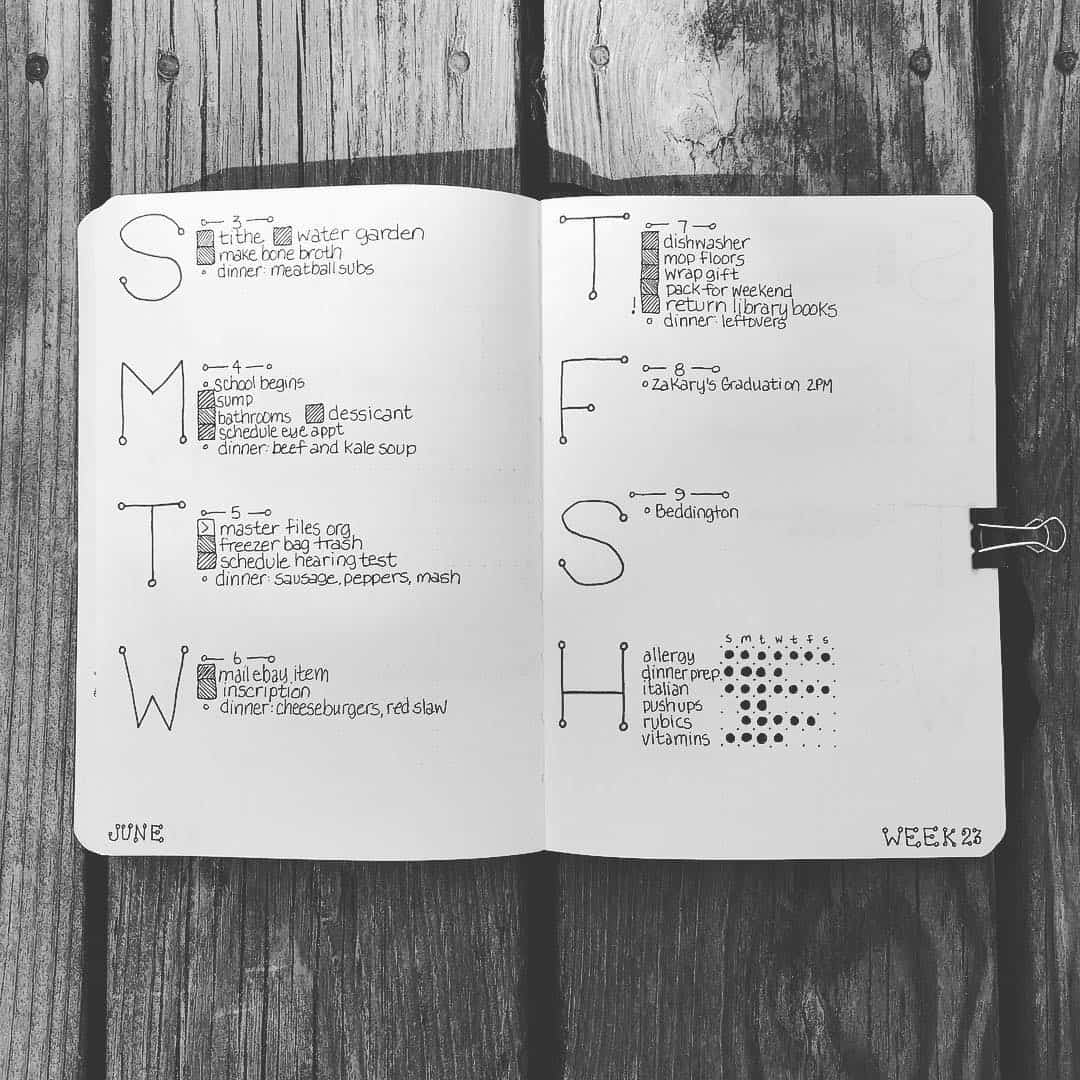 S
3
tithe water garden
make bone broth
dinner: meatball subs
M
4
school begins
sump
bathrooms dessicant
schedule eye appt
dinner: beef and kale soup
T
5
> master files org
freezer bag trash
schedule hearing test
dinner: sausage, peppers, mash
W
6
mail ebay item
inscription
dinner: cheeseburgers, red slaw
JUNE
T
7
dishwasher
mop floors
wrap gift
pack for weekend
! return library books
dinner: leftovers
F
8
Zakary's Graduation 2PM
S
9
Beddington
H
s m t w t f s
allergy
dinner prep
italian
pushups
rubics
vitamins
WEEK 23